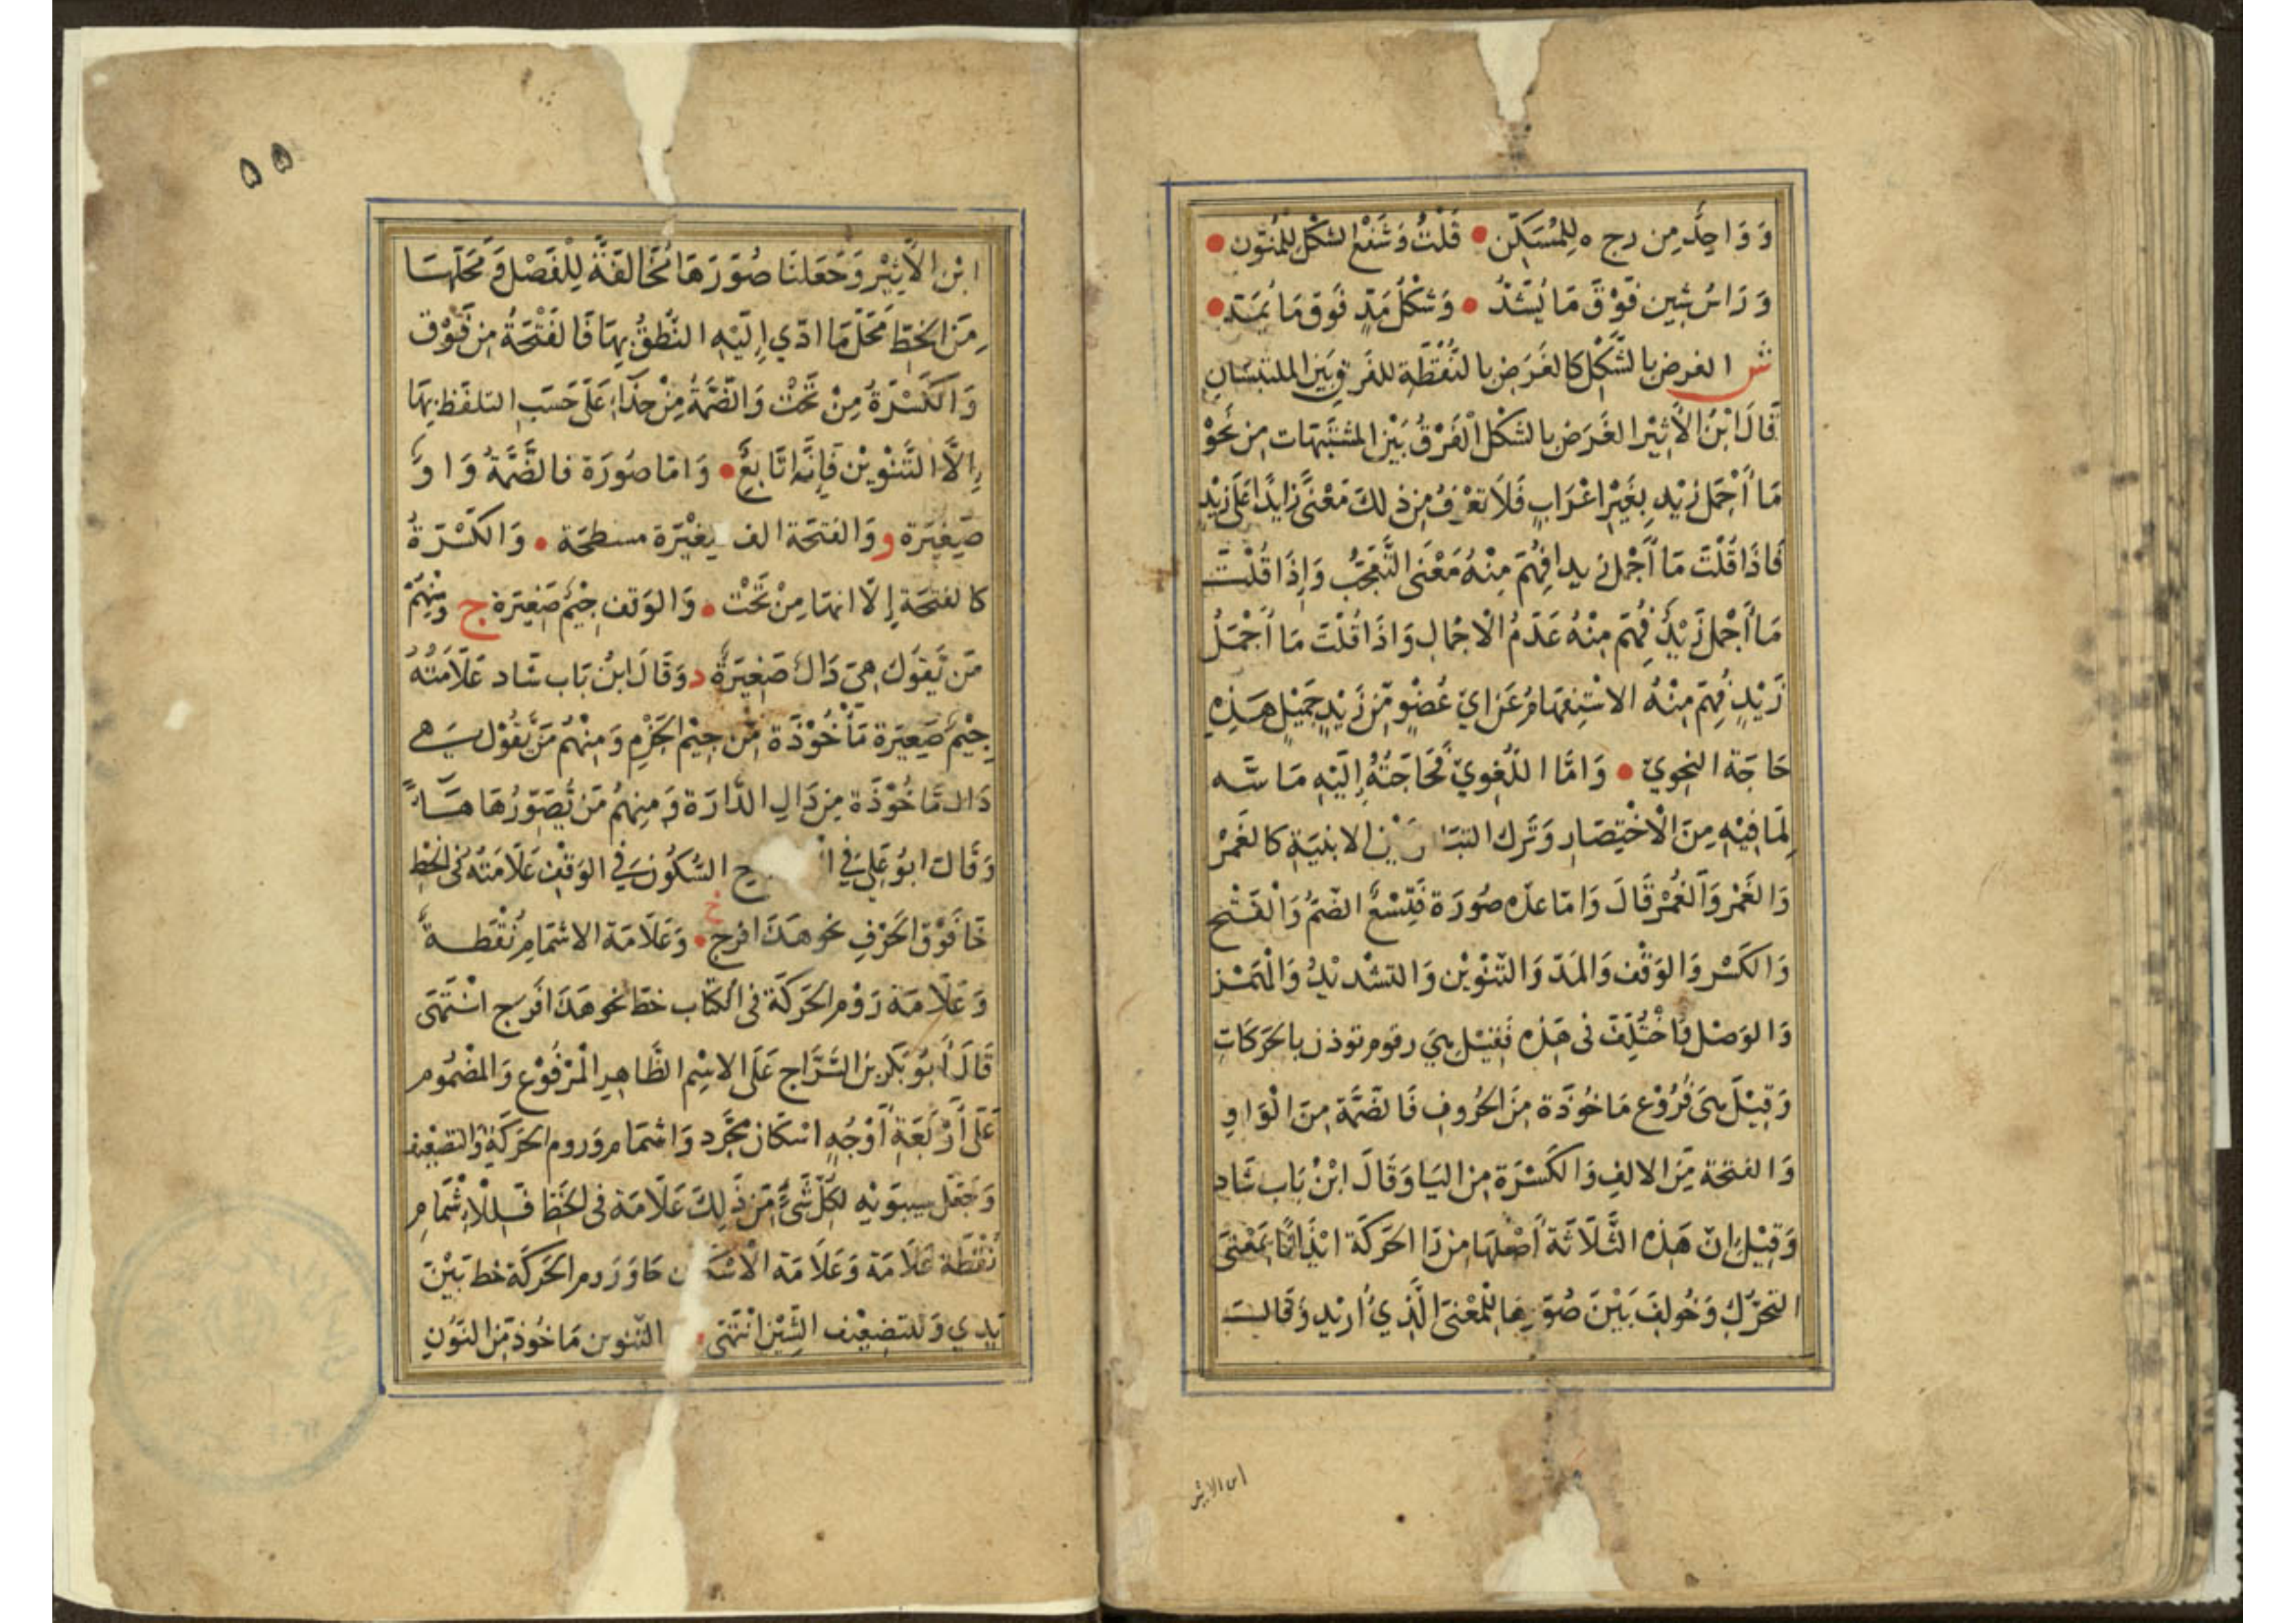 وَ وَاحِدٌ مِن رج ه لِلمُسَكَّنِ • قُلْتُ وَشَفْعُ الشَّكْلِ لِلْمُنَوَّنِ •
وَ رَاسُ شِين فَوْقَ مَا يُشَدُّ • وَشَكْلُ مَدٍّ فَوق مَا يُمَدّ •
ش الغرض بالشَّكْلِ كالغَرَضِ بالنُّقْطَةِ للفَرق بَيْن الملتبسَانِ
قَالَ ابْنُ الأَثِيْر الغَرَض بالشَكْلِ الْفَرْقُ بَيْنَ المشتبَهات مِن نَحْوْ
مَا أَجْمَل زَيْدٍ بِغَيْرِ اعْرَابٍ فَلَا تعْرَفُ مِن ذلكَ مَعْنًى زايدًا عَلَى زَيْدٍ
فَاذَا قُلْتَ مَا أَجْمَل زيدا فُهِمَ مِنْهُ مَعْنَى التَّعَجُّبِ وَإِذَا قُلْتَ
مَا أَجْمَل زَيْدٌ فُهِمَ مِنْهُ عَدَمُ الْاجْمالِ وَاذَا قُلْتَ مَا أَجْمَلُ
زَيْدٍ فُهِمَ مِنْهُ الاسْتِفهَامُ عَن ايّ عُضْوٍ مِّن زَيْدٍ جَمِيْلٍ هَذِهِ
حَاجَة النحوِيّ • وَامَّا اللّغوِيّ فَحَاجَتُهُ إِلَيْهِ مَاسَّه
لِمَا فِيْهِ مِنَ الْاخْتِصَارِ وَتَرك بَيْن الابنيَةِ كالغَمْرِ
وَالغَمْر وَالغُمْر قَالَ وَامّا عدّه صُورَة فَتِسْعٌ الضَّمُ وَالْفَتْح
وَالكَسْر وَالوَقْف وَالمَدّ وَالتّنْوِيْن وَالتشْديْدُ وَالْهَمْز
وَالوَصْل فَاخْتُلِفَ فى هَذِه فَقِيْل هِيَ رقوم توذن بالحَرَكَاتِ
وَقِيْلَ هِيَ فُرُوْع مَاخُوْذَة مِنَ الحُرُوفِ فَالضَّمَّة مِنَ الْوَاوِ
وَالفتحَة مِّنَ الالِفِ وَالكَسْرَة مِن اليَا وَقَالَ ابْنُ بَاب شَاد
وَقِيْلَ انّ هَذِه الثَّلَاثَة أَصْلهَا مِن ذَا الحَرَكَة ايْذَانًا بِمَعْنَى
التحَرُّكِ وَخُولِفَ بَيْنَ صُوَرِهَا لِلْمَعْنَى الَّذِيُ ارِيْد وَقَالَ
ابن الاثير
۵۵
ابْن الأَثِيْر وَجَعَلنَا صُوَرَهَا مُخَالفَةً لِلْفَصْل وَمَحَلّهَا
مِنَ الخطِّ مَحَلّ مَا ادّي إِلَيْهِ النُّطْقُ بِهَا فَالفَتْحَةُ مِن فَوْق
وَالكَسْرَةُ مِنْ تَحْت وَالضَّمَّةُ مِنْ حِذَاءِ عَلَى حَسَبِ التلفّظ بِهَا
إِلَّا التَّنْوِيْن فَإِنَّه تَابِعٌ • وَامّا صُورَة فالضَّمَّةُ وَاوٌ
صَغِيْرَة و وَالفتحَة الف صغِيْرَة مسطحَة • وَالكَسْرَةُ
كالفتحَة إِلّا انهَا مِنْ تَحْت • وَالوَقف جِيْمٌ صَغِيْرَة ج وَمِنْهُمْ
مَن يَّقوْل هِيَ دَالٌ صَغِيْرَةٌ د وَقَالَ ابنُ بَاب شَاد عَلَامَتُهُ
جِيْمٌ صَغِيَرَة مَأْخُوْذَة مِّن جِيْم الجَزْمِ وَمِنْهُم مَن يَّقُوْل هي
دَال مَّاخُوْذَة مِن دَالِ الدَّارَة وَمِنهُم مَن يُّصَوِّرُهَا هَاءً
وَقَالَ ابوُ عَلِيّ فِي السُّكُونِ فِي الوَقْفِ عَلَامَتُه فى الخطِ
خَا فَوْقَ الحَرْفِ نحو هَذَا فرج • وَعَلَامَة الاشمَامِ نُقْطَةٌ
وَعَلَامَة رَوْم الحَرَكَة فى الكتَاب خطّ نحو هَذَا فَرج انْتَهَى
قَالَ أَبُوْ بَكر بن السَّرَّاج عَلَى الاسْمِ الظَّاهِرِ المَرْفُوْع وَالمضْمُوم
عَلَى أَرْبَعَةِ أَوْجُهٍ اسْكَان مجَّرد وَاشمَام وَرَوم الحَرَكَة وَالتضعِيْف
وَجَعَل سِيبوَيْه لكُلِّ شَيْءٍ مِّن ذَلِكَ عَلَامَة فى الخَطِ فَلِلْاِشْمَامِ
نُقْطَة عَلَامَة وَعَلَامَة الْاسْكَان خَا وَرَوم الحَرَكَة خط بَيْنَ
يَدي وَلِلتضعِيْف الشِّيْن انْتَهَى • التّنوين مَاخُوذ مِّن النُّوْنِ